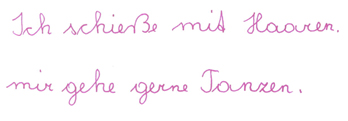 Ich schieße mit Haaren.
mir gehe gerne Tanzen.